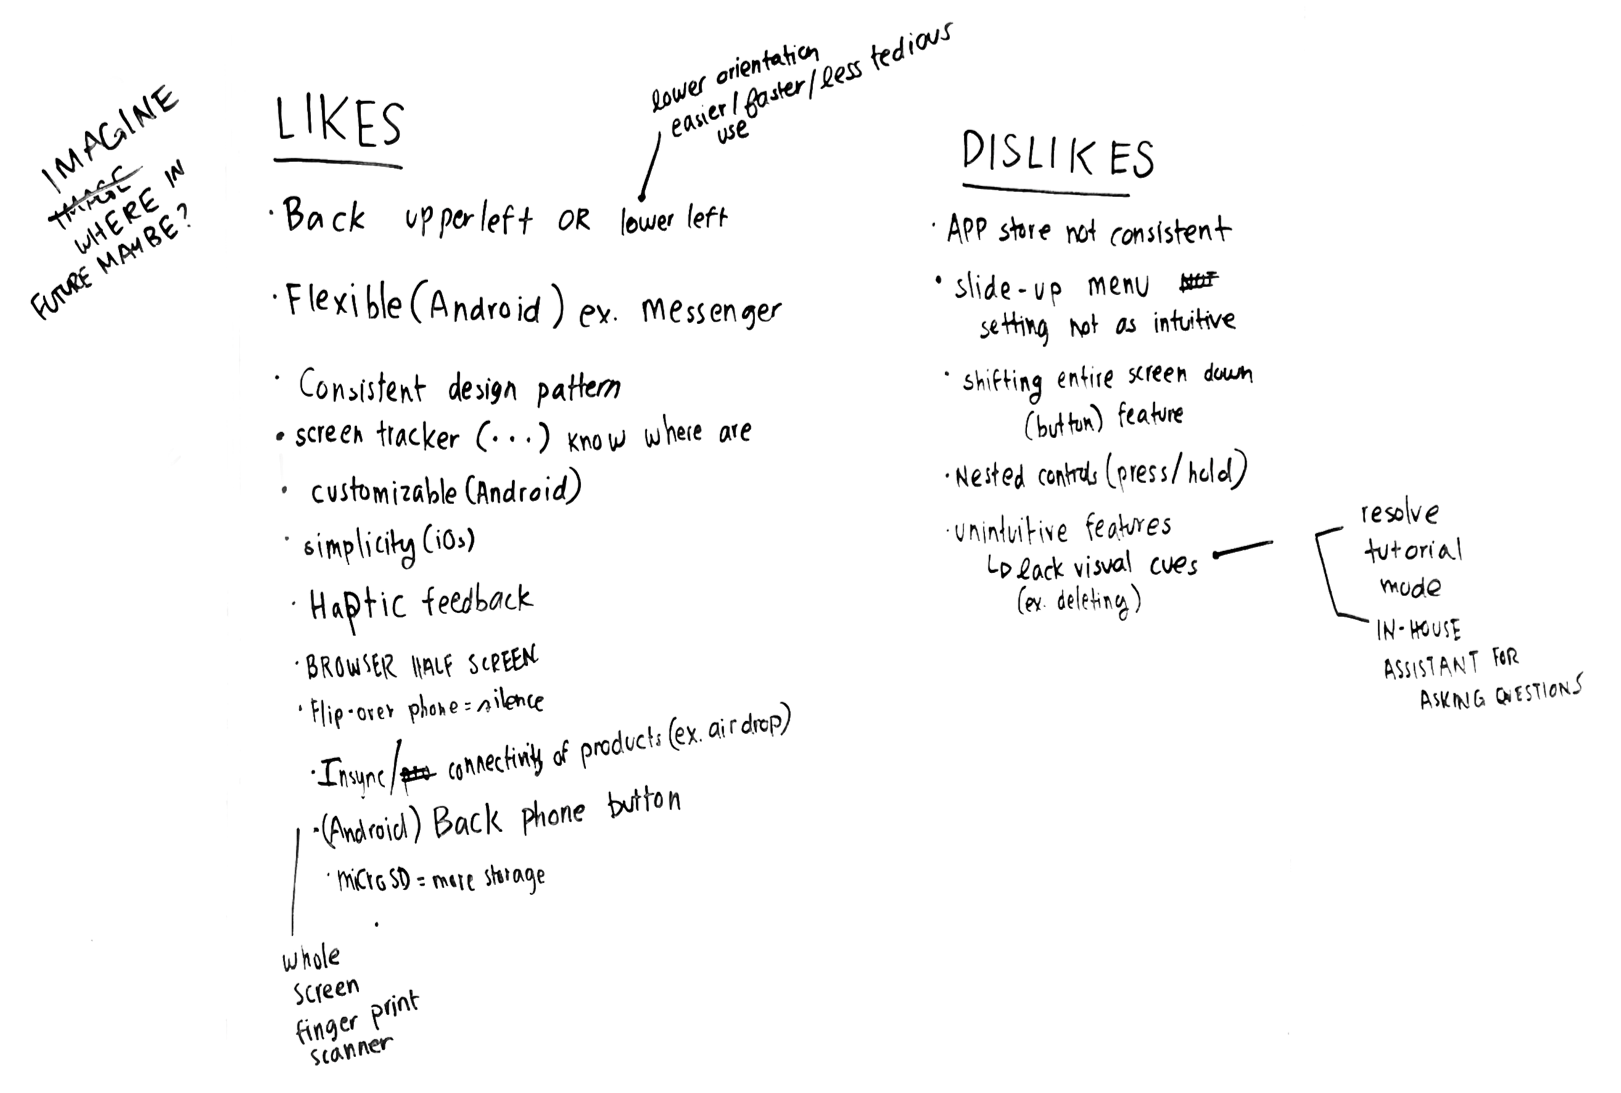 IMAGINE
IMAGE
WHERE IN
FUTURE MAYBE?
LIKES
lower orientation
easier/faster/less tedious
use
· Back upper left OR lower left
· Flexible (Android) ex. messenger
· Consistent design pattern
• screen tracker (...) know where are
· customizable (Android)
· simplicity (iOs)
· Haptic feedback
· BROWSER HALF SCREEN
· Flip-over phone = silence
· Insync/ connectivity of products (ex. air drop)
· (Android) Back phone button
· microSD = more storage
·
whole
screen
finger print
scanner
DISLIKES
· APP store not consistent
• slide-up menu NOT
setting not as intuitive
· shifting entire screen down
(button) feature
· Nested controls (press/hold)
· unintuitive features
↳ lack visual cues
(ex. deleting)
resolve
tutorial
mode
IN-HOUSE
ASSISTANT FOR
ASKING QUESTIONS